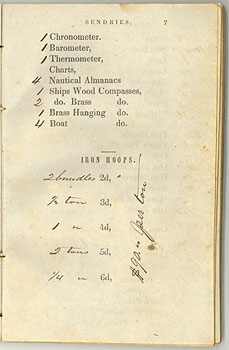 SUNDRIES. 7
1 Chronometer.
1 Barometer,
1 Thermometer,
Charts,
4 Nautical Almanacs
1 Ships Wood Compasses,
2 do. Brass do.
1 Brass Hanging do.
4 Boat do.
IRON HOOPS.
2 bundles 2d, "
½ ton 3d,
1 " 4d,
2 tons 5d,
¼ " 6d,
per ton